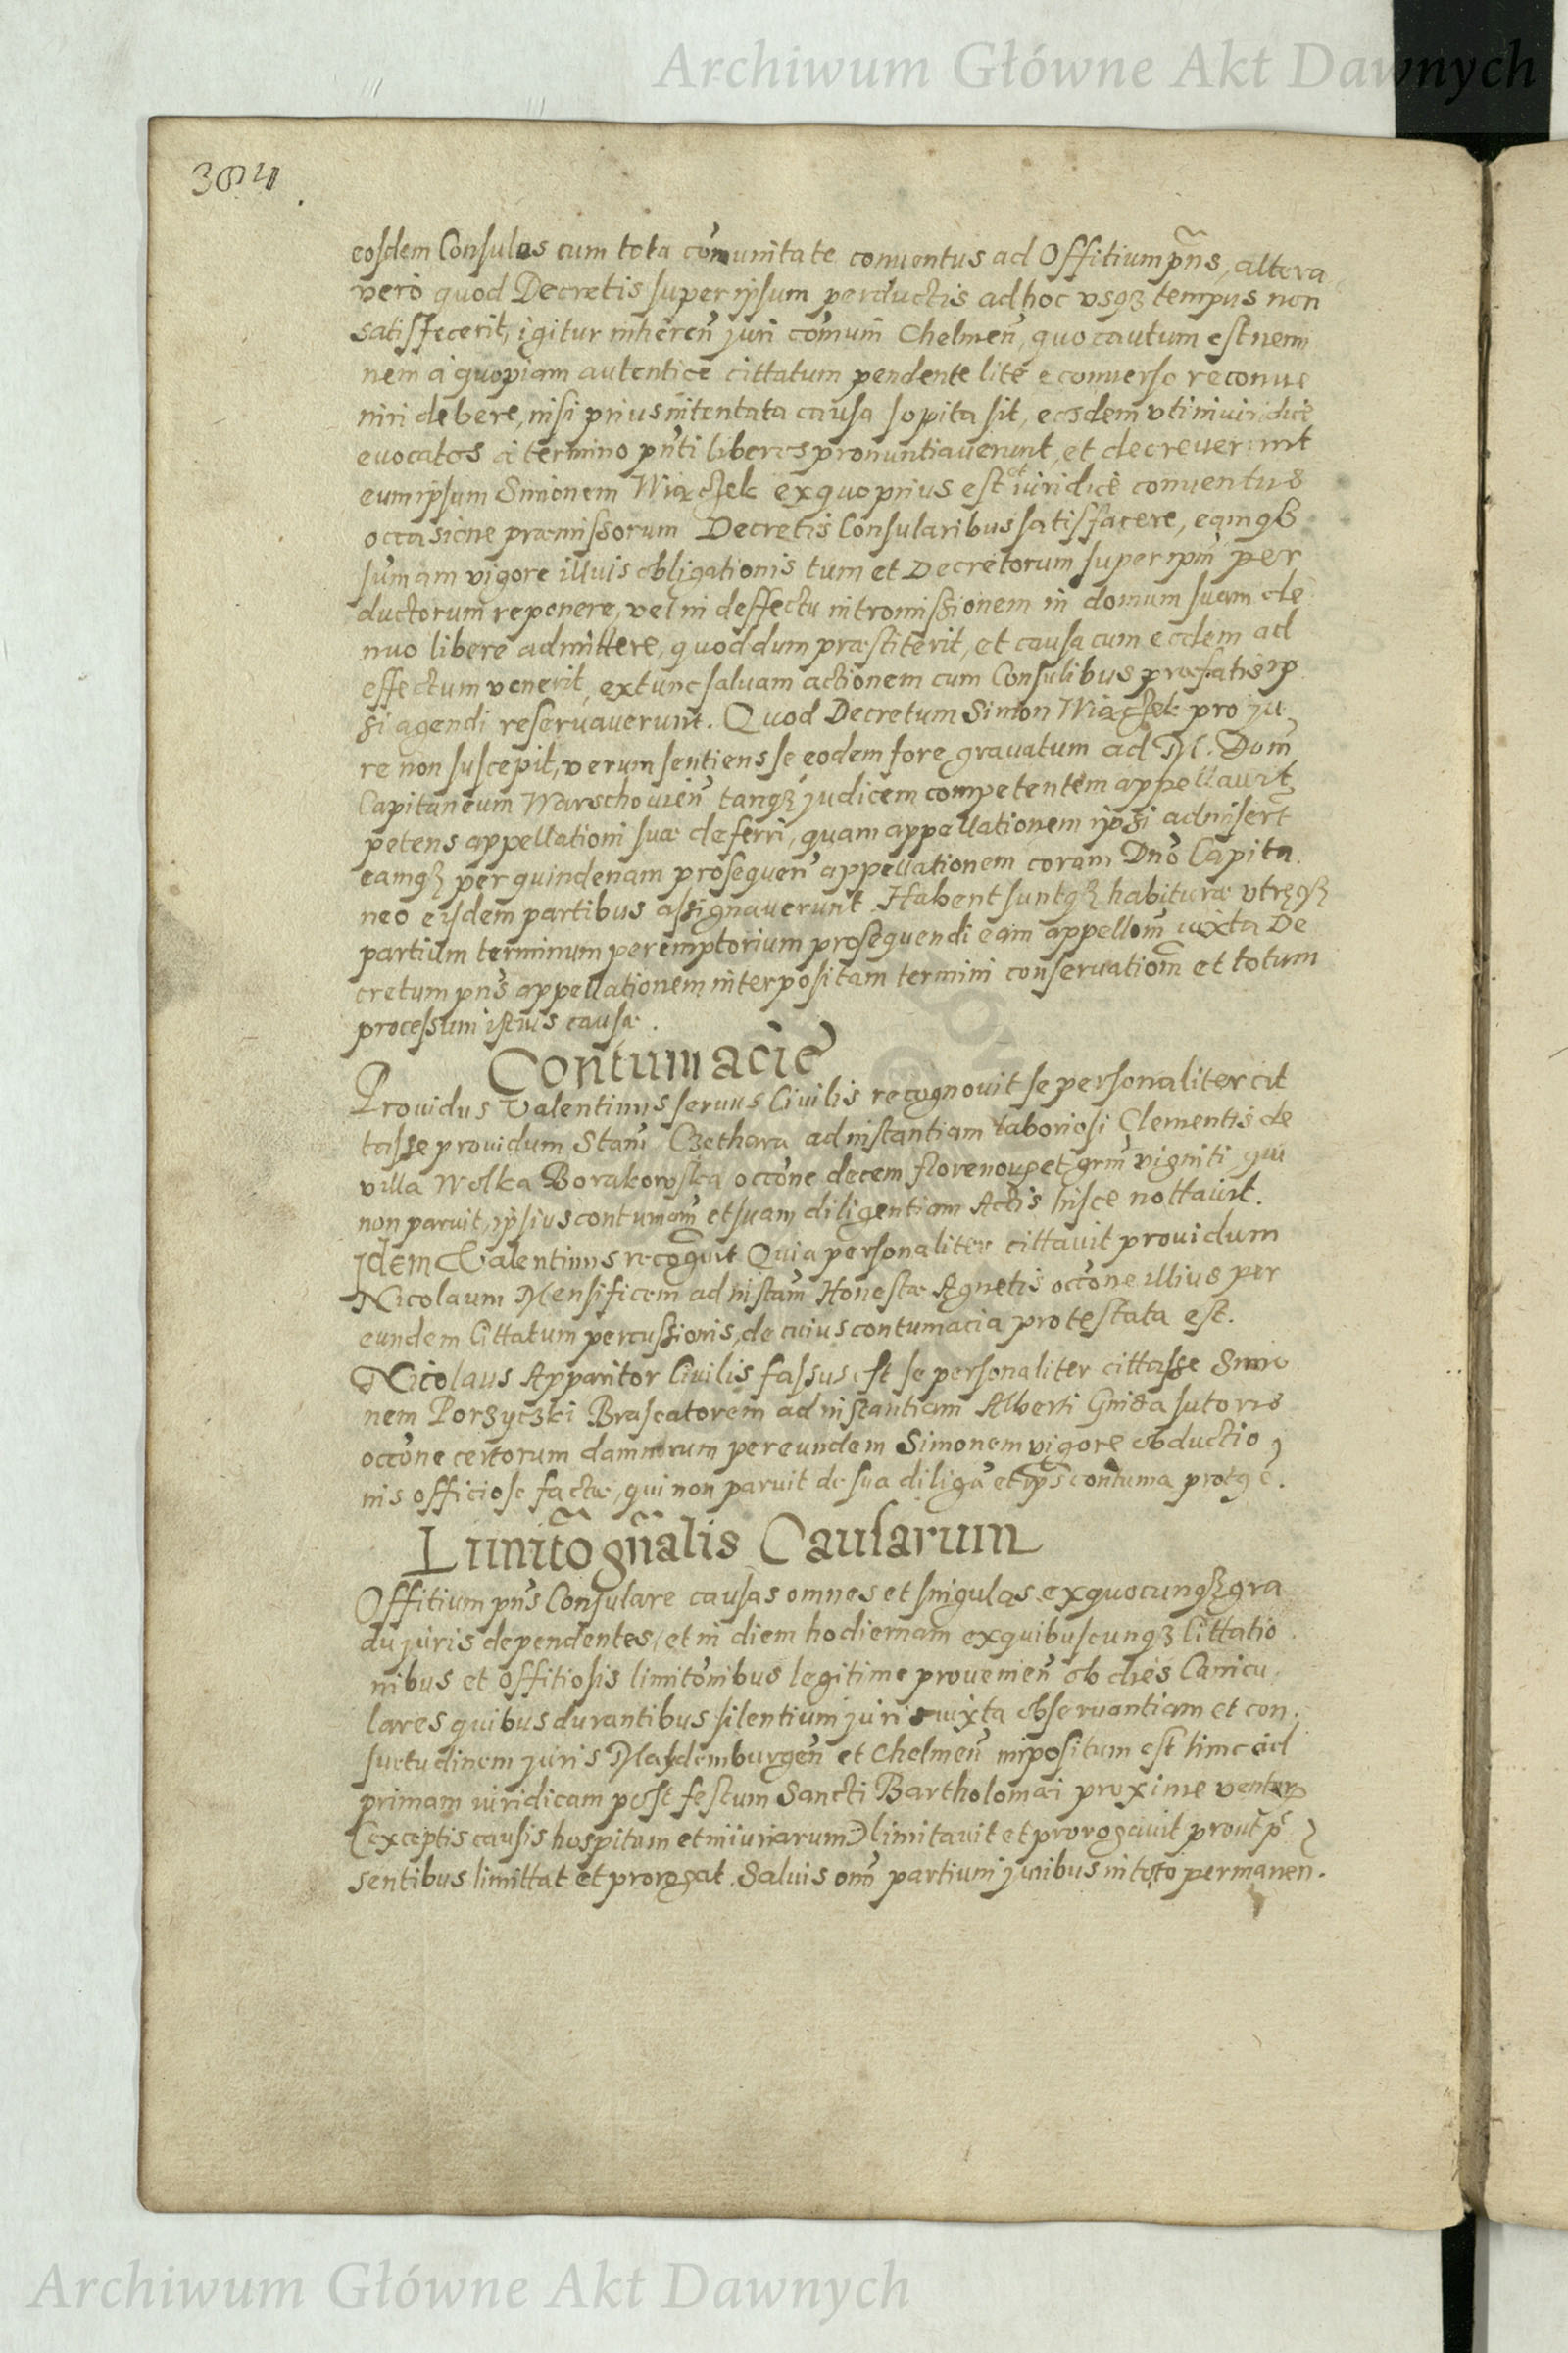 Archiwum Główne Akt Dawnych
384
eosdem Consules cum tota com̃unitate conuentus ad Offitium pn̄s, altera
vero quod Decretis super ipsum perductis ad hoc vsqʒ tempus non
satisfecerit, igitur inheren̄ juri com̃uni Chelmen̄, quo cautum est nemi
nem à quopiam autenticè cittatum pendente lite e conuerso reconue
niri debere, nisi prius intentata causa sopita sit, eosdem vti iniuridicè
euocatos à termino pn̄ti liberos pronuntiauerunt, et decreuerunt
eum ipsum Simonem Wiączek ex quo prius est et iuridicè conuentus
occasione præmissorum Decretis Consularibus satisfacere, eamqʒ
sumam vigore illius obligationis tum et Decretorum super ipm̄ per
ductorum reponere, vel in deffectu intromissionem in domum suam de
nuo liberè admittere, quod dum præstiterit, et causa cum eadem ad
effectum venerit, extunc saluam actionem cum Consulibus præfatis ip
si agendi reseruauerunt. Quod Decretum Simon Wiączek pro ju
re non suscepit, verum sentiens se eodem fore grauatum ad M. Dom̄
Capitaneum Warschouien̄ tanqʒ judicem competentem appellauit
petens appellationi suæ deferri, quam appellationem ipsi admisert
eamqʒ per quindenam prosequen̄ appellationem coram Dn̄o Capita
neo eisdem partibus assignauerunt. Habent suntqʒ habituræ vtręqʒ
partium terminum peremptorium prosequendi eam appellom̄ iuxta De
cretum pn̄s appellationem interpositam termini conseruatiom̄ et totum
processum istius causæ.
Contumaciē
Prouidus Valentinus seruus Ciuilis recognouit se personaliter cit
tasse prouidum Stanī Czethara ad instantiam laboriosi Clementis de
villa Wolka Borakowska occōne decem florenoꝝ et grm̄ viginti qui
non paruit, ipsius contumam̄ et suam diligentiam Actis hisce nottauit.
Idem Valentinus recognuit Quia personaliter cittauit prouidum
Nicolaum Mensificem ad instam̄ Honestæ Agnetis occōne illius per
eundem Cittatum percussionis, de cuius contumacia protestata est.
Nicolaus Apparitor Ciuilis fassus est se personaliter cittasse Simo
nem Porzyczki Braseatorem ad instantiam Alberti Gnida sutoris
occōne certorum damnorum per eundem Simonem vigore obductio
nis officiose factæ, qui non paruit de sua diliga͂ et ips̄ contuma protg̃ ē.
Limitō gn̄alis Causarum
Offitium pn̄s Consulare causas omnes et singulas ex quocunqʒ gra
du juris dependentes, et in diem hodiernam ex quibuscunqʒ Cittatio
nibus et offitiosis limitōnibus legitime prouenien̄ ob dies Canicu
lares quibus durantibus silentium juris iuxta obseruantiam et con
suetudinem juris Maydemburgen̄ et Chelmen̄ impositum est hinc ad
primam iuridicam post festum Sancti Bartholomæi proxime ventur
(exceptis causis hospitum et iniuriarum) limitauit et prorogauit prout pē
sentibus limittat et prorogat. Saluis om̄ partium juribus in toto permanen̄.
Archiwum Główne Akt Dawnych